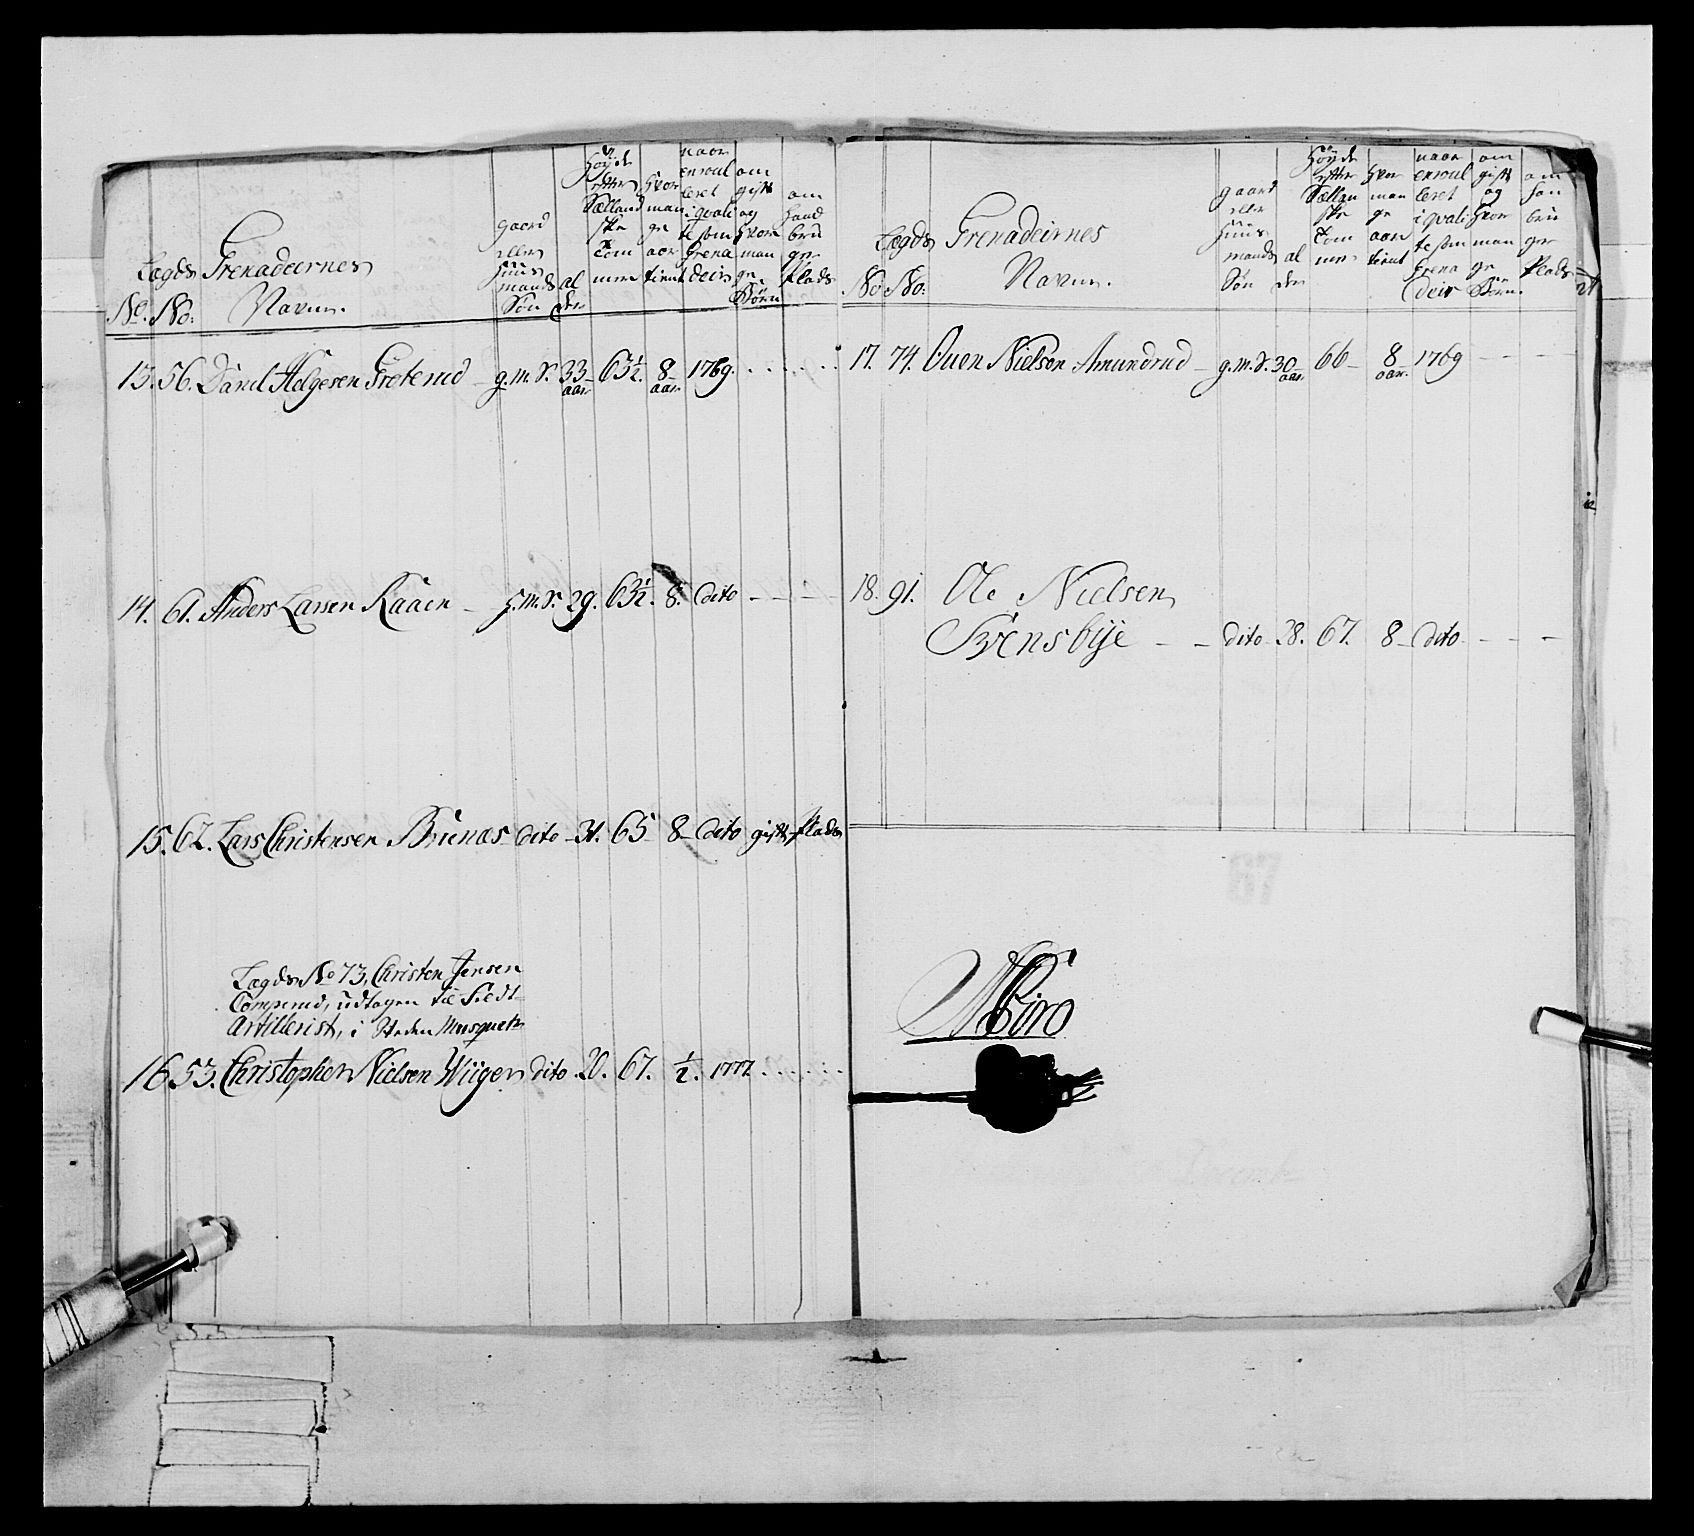 No. Lægds No: Grenadeernes Navne. gaard eller huus mands Søn al der Høyde efter Sælland ske Tom mer hvor man ge aar tient naar enroul leret i qvali te som Grena deir om gift og hvor man ge Børn om hand brü ger Plads
13. 56. Daniel Helgesen Grøterud - g.m.S. 33 aar 63½. 8 aar 1769. . . . . . .
14. 61. Anders Larsen Raaen - h.m.S. 29. 63½. 8. dito - - - -
15. 62. Lars Christensen Brunæs dito - 31. 65 8 - dito gift Plads
Lægds No 73, Christen Jensen
Comperud, udtagen til Feldt
Artillerist, i Steden Musquetr
16 53. Christopher Nielsen Wiigen dito 20. 67. ½. 1777. . . . . .
No Lægds No: Grenadeirnes Navne. gaard eller huus mands Søn al der Høyde efter Sællan ske Tom mer hvor man ge aar tient naar enroul leret i qvali te som Grena deir om gift og hvor man ge Børn. om han brü ger Plads
17. 74. Ouen Nielsen Amundrud - g.m.S. 30 aar 66 - 8 aar. 1769 - - - -
18. 91. Ole Nielsen
Svensbye - - dito 28. 67. 8 - dito - - -